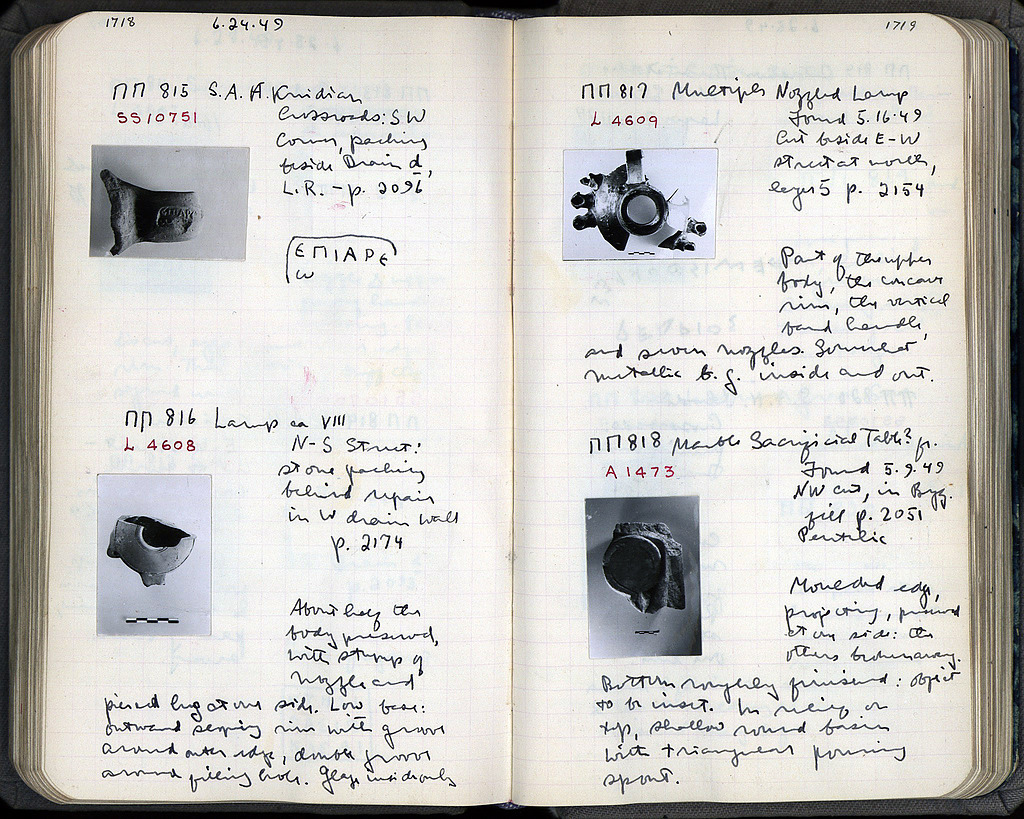 1718
6.24.49
ΠΠ 815 S.A.H. Knidian
SS10751
Crossroads: SW
Corner, packing
beside Drain d,
L.R. - p. 2096
ΕΠΙΑΡΕ
ω
ΠΠ 816 Lamp ca VIII
L 4608
N-S Street:
stone packing
behind repair
in W drain wall
p. 2174
About half the
body preserved,
with stump of
nozzle and
pierced lug at one side. Low base:
outward sloping rim with groove
around outer edge, double groove
around filling hole. Glaze inside only
1719
ΠΠ 817 Multiple Nozzled Lamp
L 4609
Found 5.16.49
Cut beside E-W
street at north,
layer 5 p. 2154
Part of the upper
body, the concave
rim, the vertical
band handle,
and seven nozzles. Somewhat
metallic b.g. inside and out.
ΠΠ 818 Marble Sacrificial Table? fr.
A 1473
Found 5.9.49
NW cut, in Byz.
fill p. 2051
Pentelic
Moulded edge,
projecting, preserved
at one side: the
others broken away.
Bottom roughly finished: object
to be inset. In relief on
top, shallow round basin
with triangular pouring
spout.